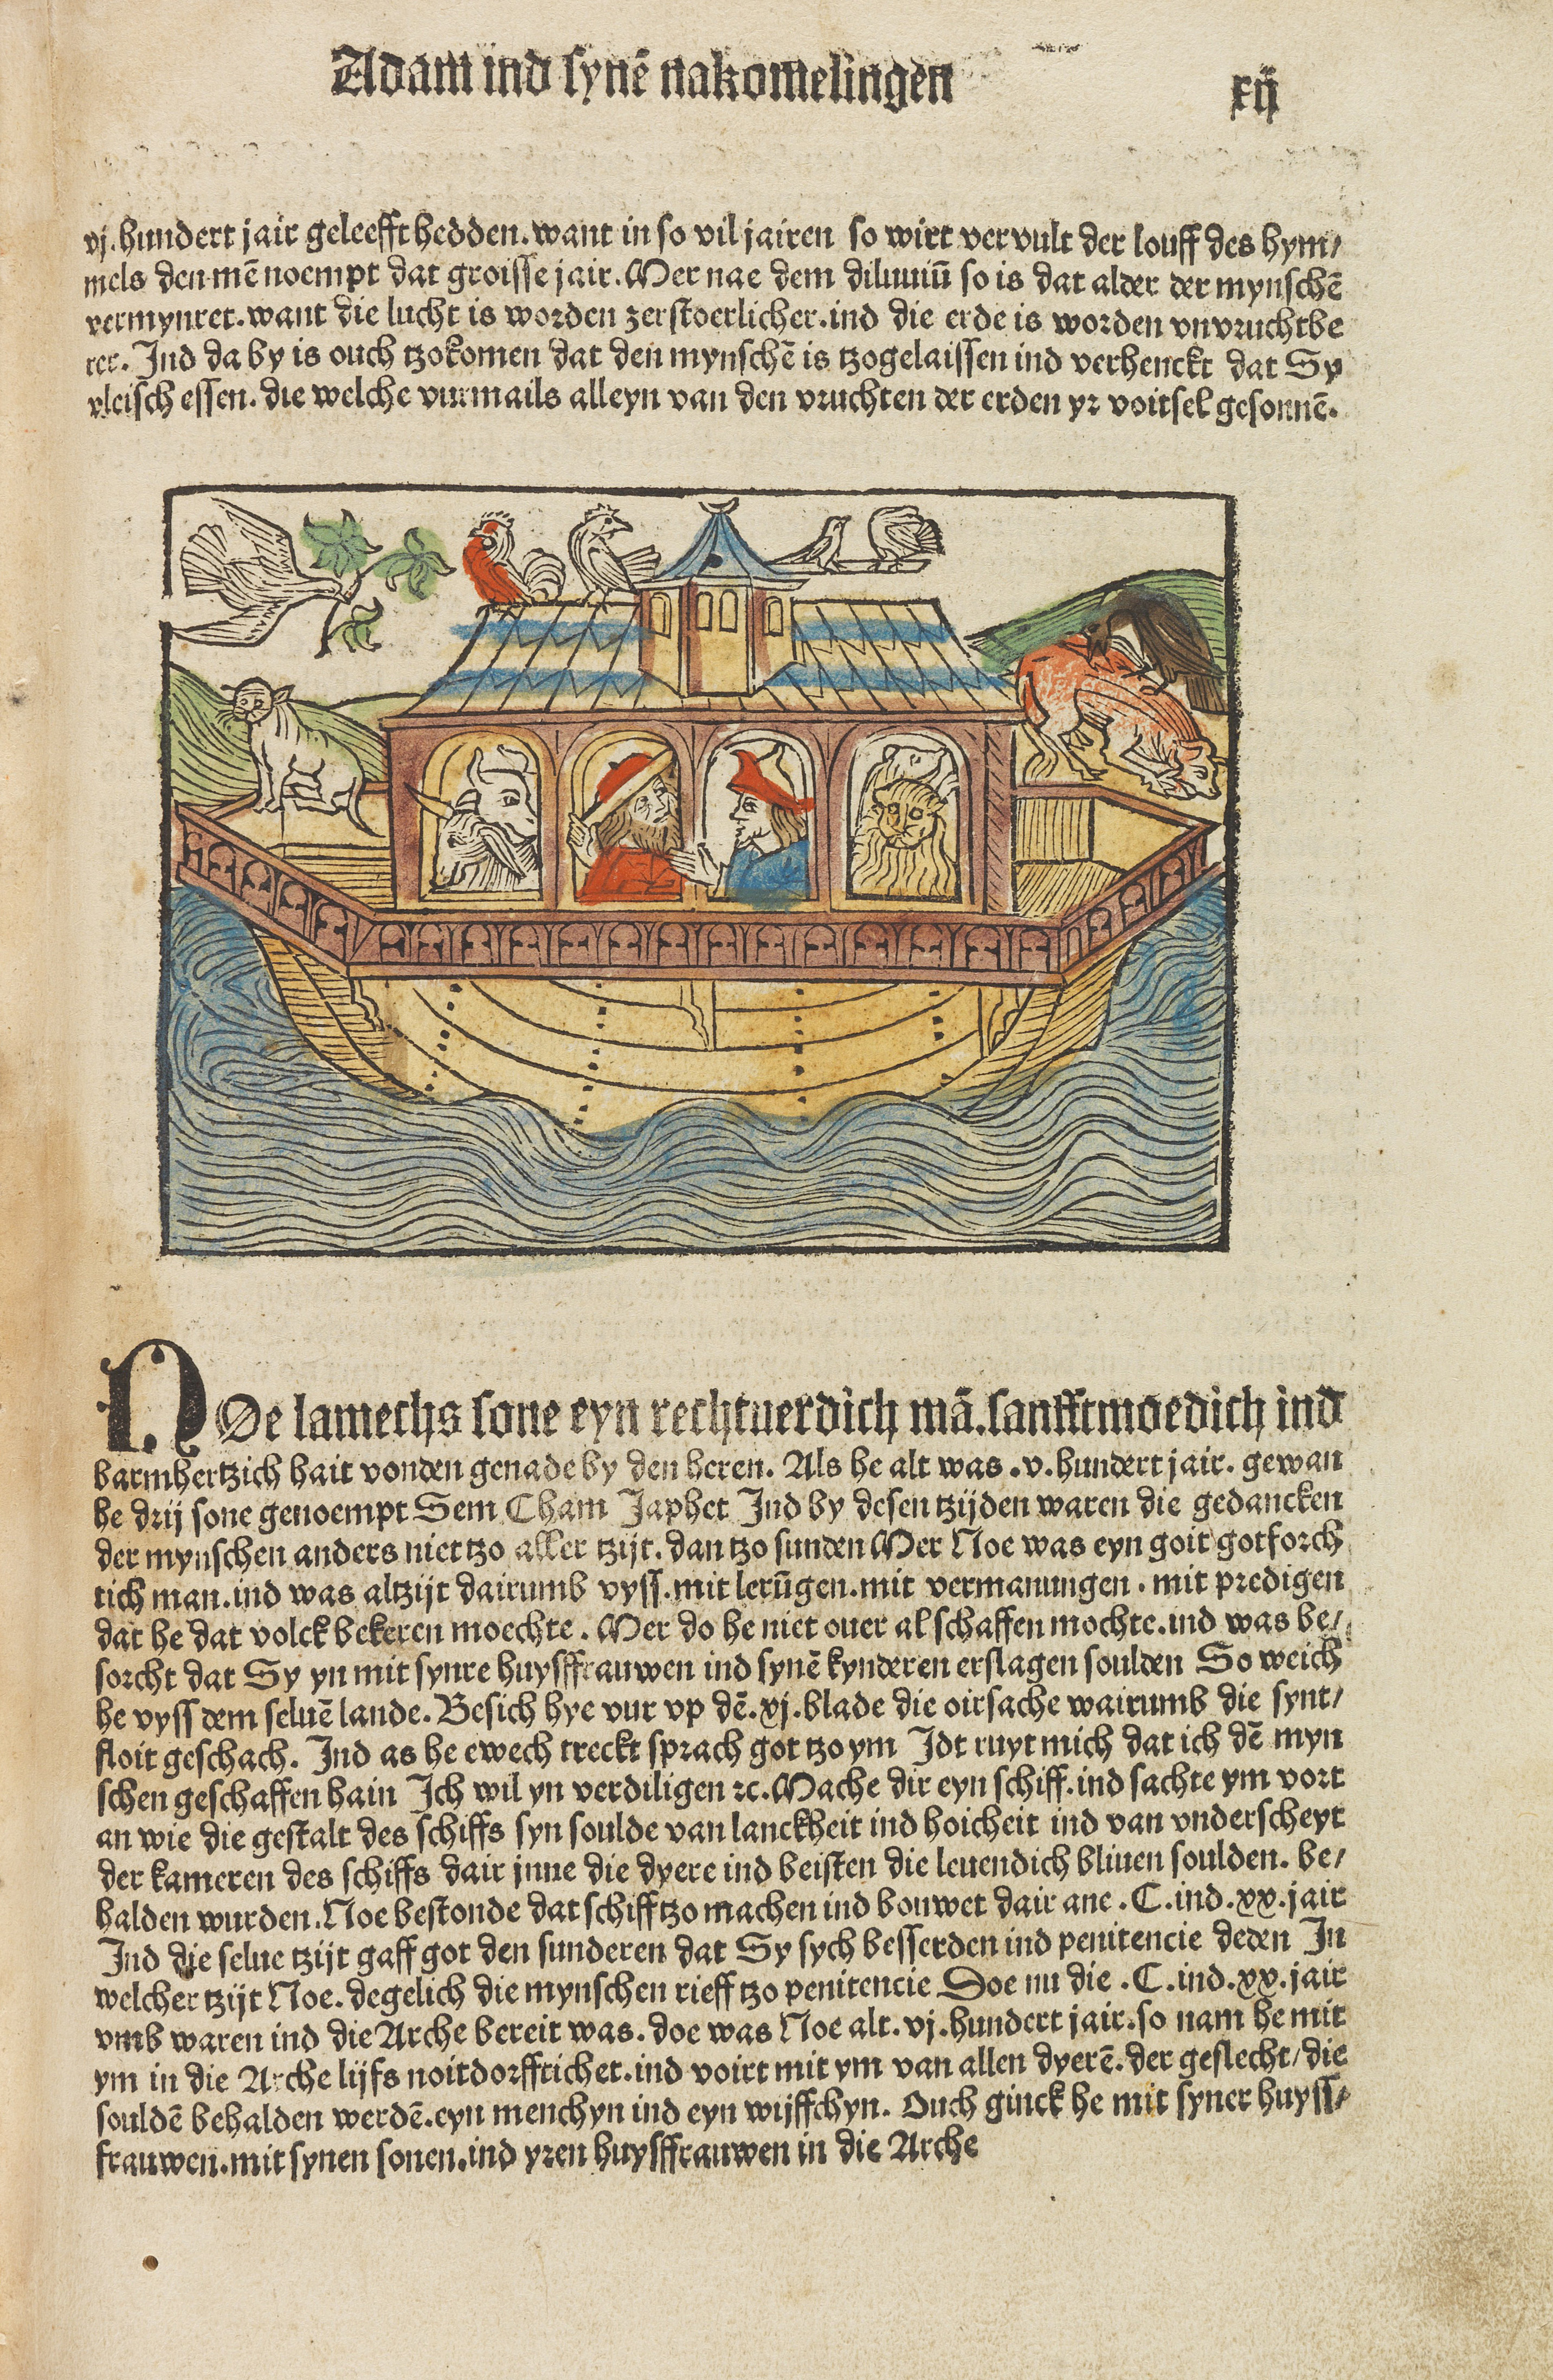 Adam ind synē nakomelingen
xij
vj. hundert jair geleefft hedden. want in so vil jairen so wirt vervult der louff des hym/
mels den mē noempt dat groisse jair. Mer nae dem diluuiū so is dat alder der mynschē
vermynret. want die lucht is worden zerstoerlicher. ind die erde is worden vnvruchtbe
rer. Ind da by is ouch tzokomen dat den mynschē is tzogelaissen ind verhenckt dat Sy
vleisch essen. die welche vurmails alleyn van den vruchten der erden yr voitsel gesonnē.
NOe lamechs sone eyn rechtuerdich mā. sanfftmoedich ind
barmhertzich hait vonden genade by den heren. Als he alt was .v. hundert jair. gewan
he drij sone genoempt Sem Cham Japhet Ind by desen tzijden waren die gedancken
der mynschen anders niet tzo aller tzijt. dan tzo sunden Mer Noe was eyn goit gotforch
tich man. ind was altzijt dairumb vyss. mit lerūgen. mit vermanungen. mit predigen
dat he dat volck bekeren moechte. Mer do he niet ouer al schaffen mochte. ind was be/
sorcht dat Sy yn mit synre huysffrauwen ind synē kynderen erslagen soulden So weich
he vyss dem seluē lande. Besich hye vur vp dē .xj. blade die oirsache wairumb die synt/
floit geschach. Ind as he ewech treckt sprach got tzo ym Idt ruyt mich dat ich dē myn
schen geschaffen hain Ich wil yn verdiligen ⁊c. Mache dir eyn schiff. ind sachte ym vort
an wie die gestalt des schiffs syn soulde van lanckheit ind hoicheit ind van vnderscheyt
der kameren des schiffs dair jnne die dyere ind beisten die leuendich bliuen soulden. be/
halden wurden. Noe bestonde dat schiff tzo machen ind bouwet dair ane .C. ind .xx. jair
Ind die selue tzijt gaff got den sunderen dat Sy sych besserden ind penitencie deden In
welcher tzijt Noe. degelich die mynschen rieff tzo penitencie Doe nu die .C. ind .xx. jair
vmb waren ind die Arche bereit was. doe was Noe alt .vj. hundert jair. so nam he mit
ym in die Arche lijfs noitdorfftichet. ind voirt mit ym van allen dyerē. der geslecht/ die
souldē behalden werdē. eyn menchyn ind eyn wijffchyn. Ouch ginck he mit syner huyss/
frauwen. mit synen sonen. ind yren huysffrauwen in die Arche